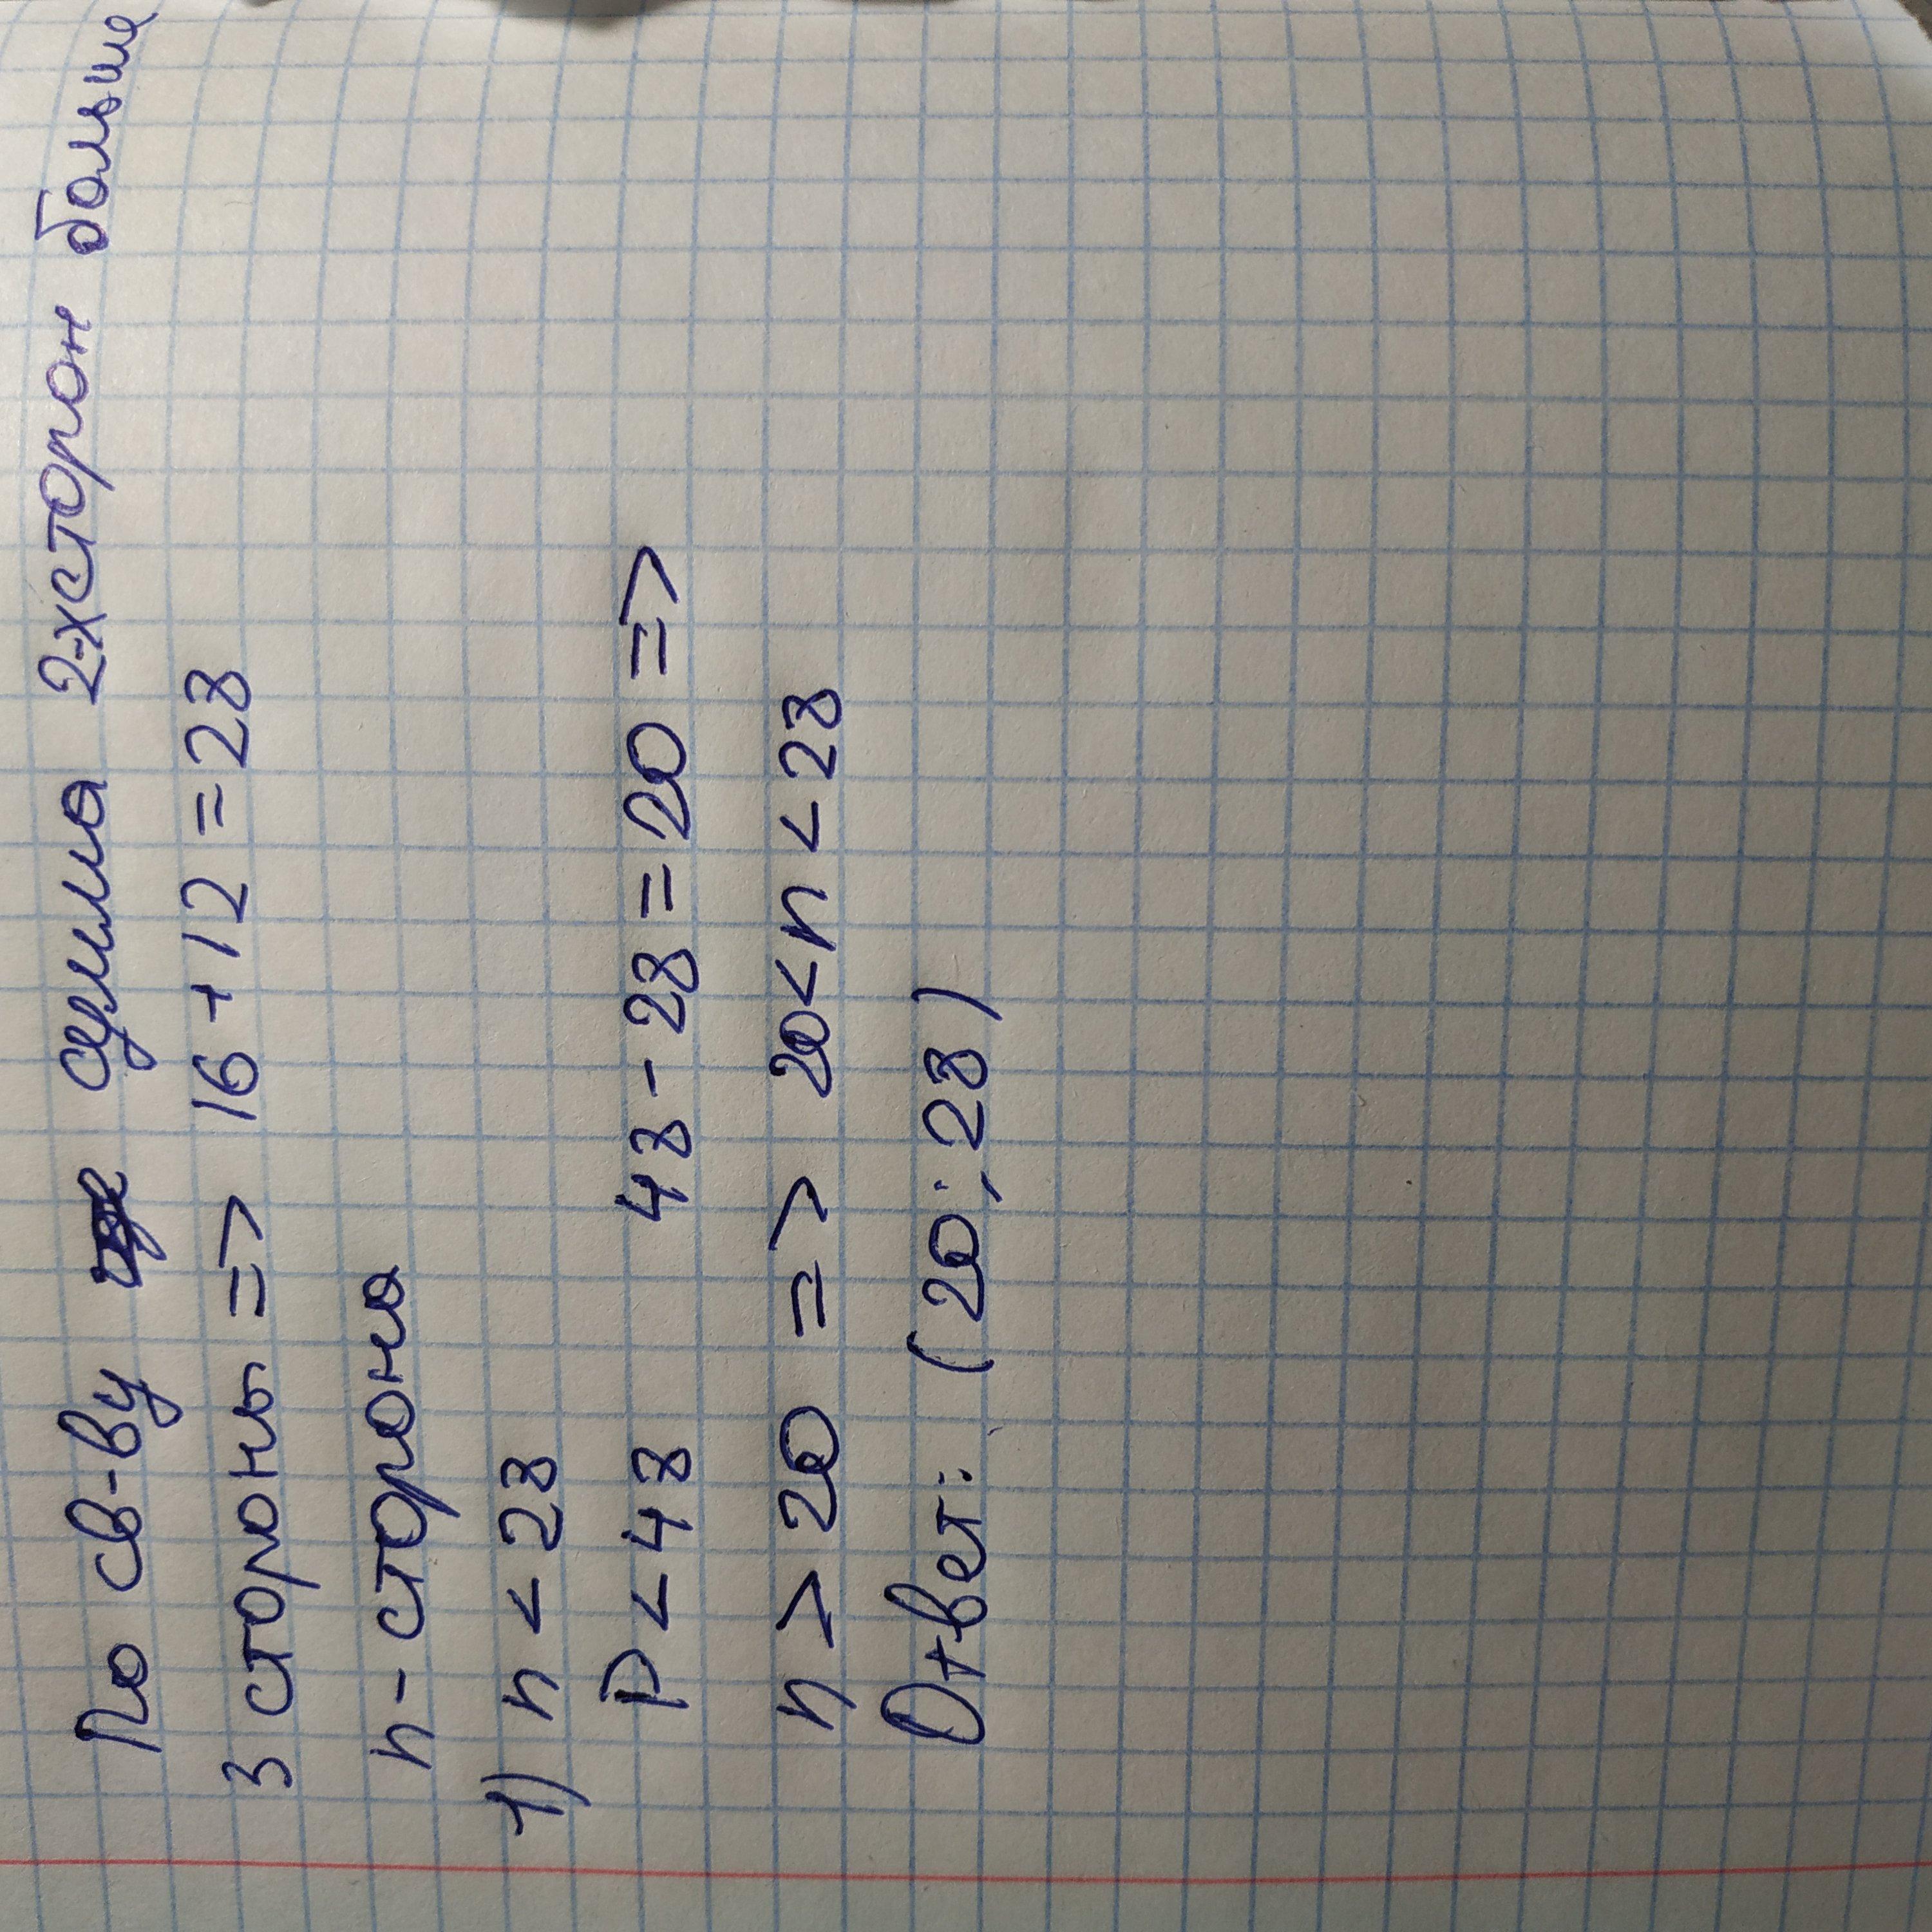 По св-ву сумма 2-х сторон больше
3 стороны => 16 + 12 = 28
n - сторона
1) n < 28
P < 48 48 - 28 = 20 =>
n > 20 => 20 < n < 28
Ответ: (20; 28)